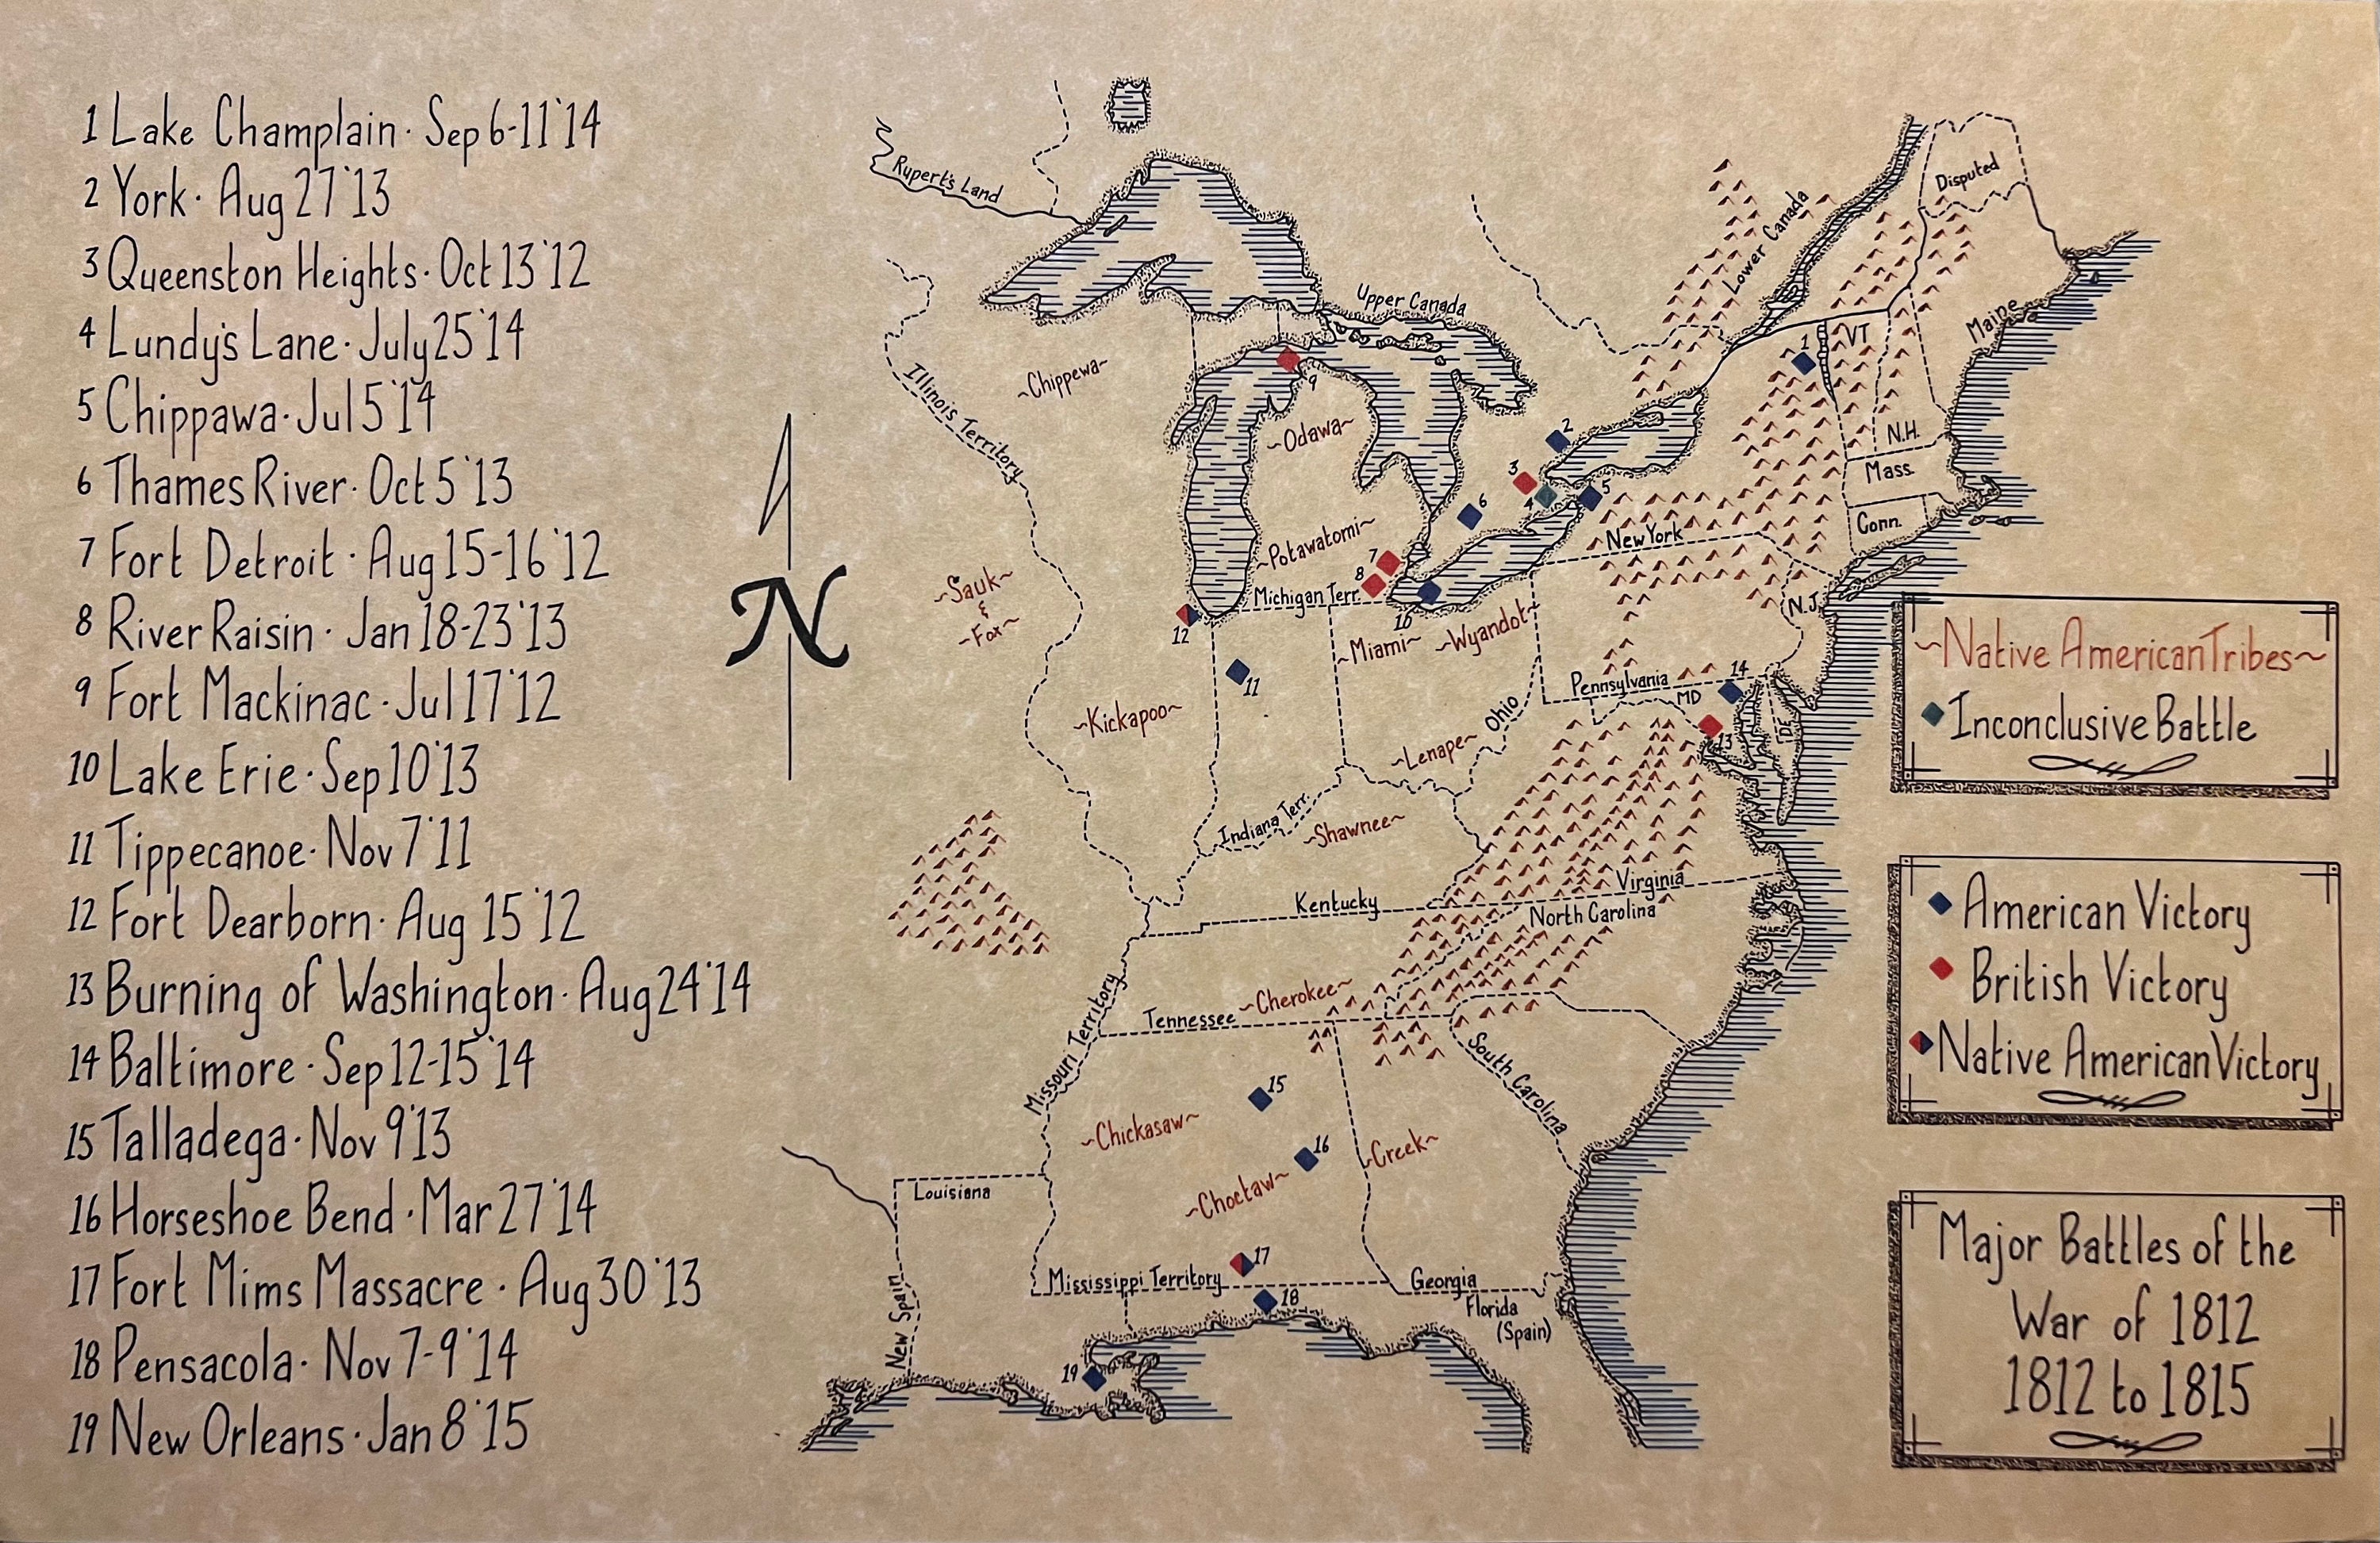 1 Lake Champlain · Sep 6-11 '14
2 York · Aug 27 '13
3 Queenston Heights · Oct 13 '12
4 Lundy's Lane · July 25 '14
5 Chippawa · Jul 5 '14
6 Thames River · Oct 5 '13
7 Fort Detroit · Aug 15-16 '12
8 River Raisin · Jan 18-23 '13
9 Fort Mackinac · Jul 17 '12
10 Lake Erie · Sep 10 '13
11 Tippecanoe · Nov 7 '11
12 Fort Dearborn · Aug 15 '12
13 Burning of Washington · Aug 24 '14
14 Baltimore · Sep 12-15 '14
15 Talladega · Nov 9 '13
16 Horseshoe Bend · Mar 27 '14
17 Fort Mims Massacre · Aug 30 '13
18 Pensacola · Nov 7-9 '14
19 New Orleans · Jan 8 '15
N
Rupert's Land
Disputed
Lower Canada
Upper Canada
Maine
1
VT
~Chippewa~
9
Illinois Territory
~Odawa~
2
N.H.
3
Mass.
4
5
6
Conn.
New York
~Potawatomi~
7
8
~Sauk~
&
~Fox~
Michigan Terr.
10
N.J.
12
~Miami~
~Wyandot~
11
Pennsylvania
14
MD
13
DE
~Kickapoo~
~Lenape~
Ohio
Indiana Terr.
~Shawnee~
Kentucky
Virginia
North Carolina
Missouri Territory
Tennessee
~Cherokee~
South Carolina
15
~Chickasaw~
16
~Creek~
~Choctaw~
Louisiana
17
Mississippi Territory
Georgia
18
Florida
(Spain)
New Spain
19
~Native American Tribes~
Inconclusive Battle
American Victory
British Victory
Native American Victory
Major Battles of the
War of 1812
1812 to 1815